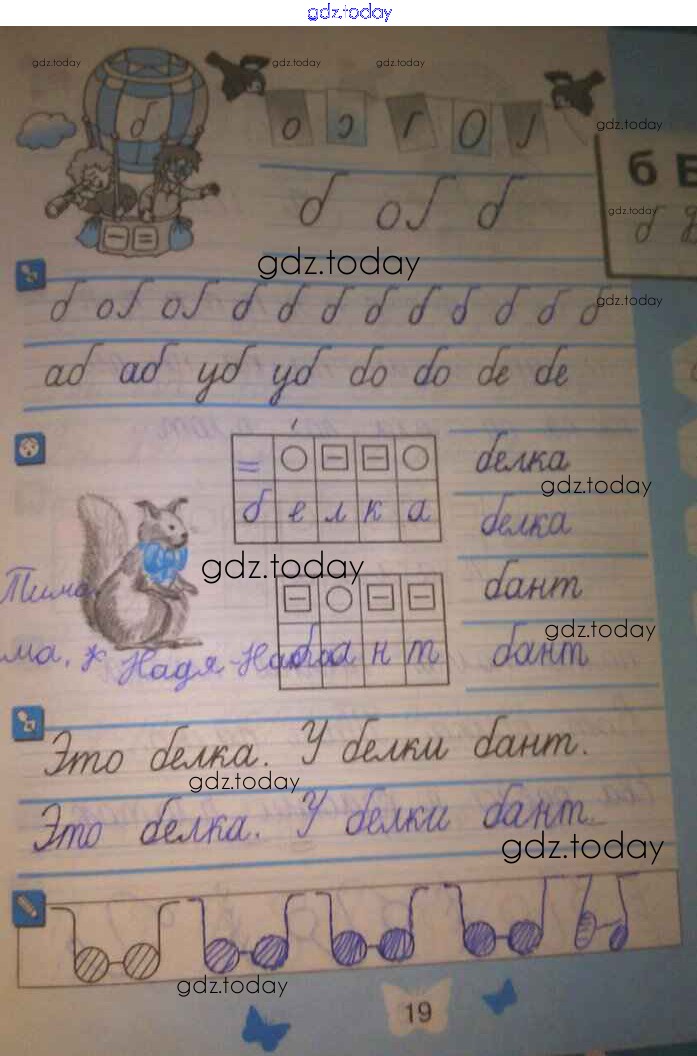 gdz.today
gdz.today gdz.today gdz.today
б
о с г О г
gdz.today
б Б
б об б
gdz.today
б
gdz.today
б об об б б б б б б б б б
gdz.today
аб аб уб уб бо бо бе бе
белка
б е л к а
gdz.today
белка
gdz.today
бант
Тима
gdz.today
ма, Надя-На
б а н т
бант
Это белка. У белки бант.
gdz.today
Это белка. У белки бант.
gdz.today
gdz.today
19